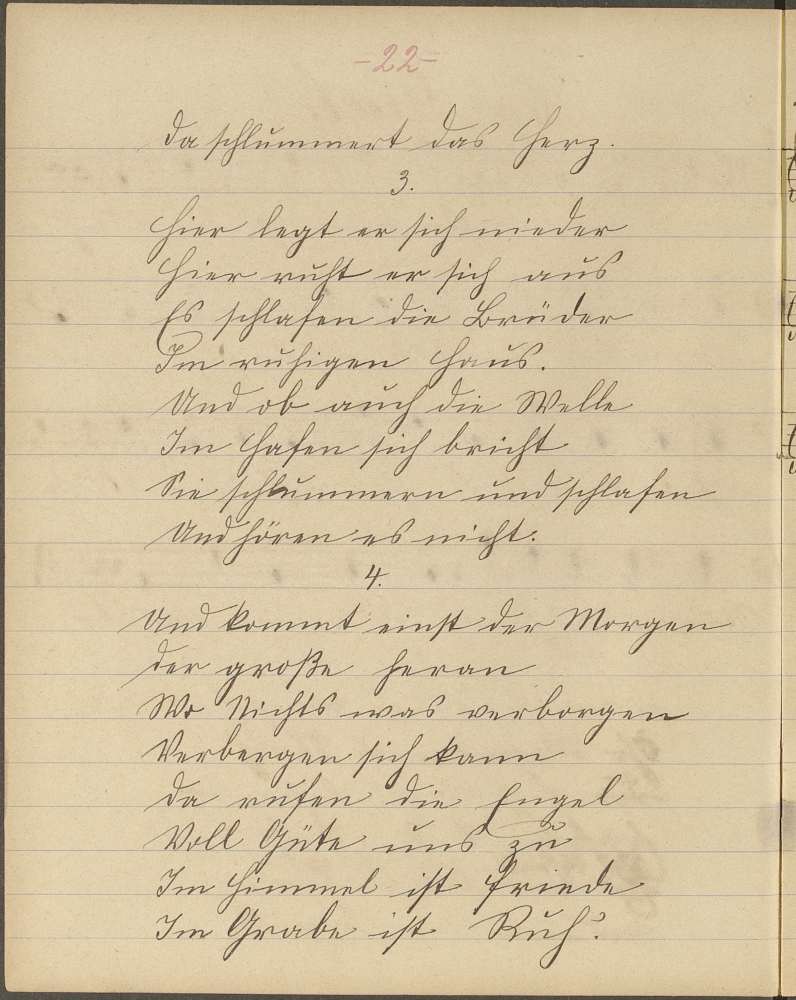 -22-
Da schlummert das Herz.
3.
Hier legt er sich nieder
Hier ruht er sich aus
Es schlafen die Brüder
Im ruhigen Haus.
Und ob auch die Welle
Im Hafen sich bricht
Sie schlummern und schlafen
Und hören es nicht.
4.
Und kommt einst der Morgen
Der große heran
Wo Nichts was verborgen
Verbergen sich kann
Da rufen die Engel
Voll Güte uns zu
Im Himmel ist Friede
Im Grabe ist Ruh.